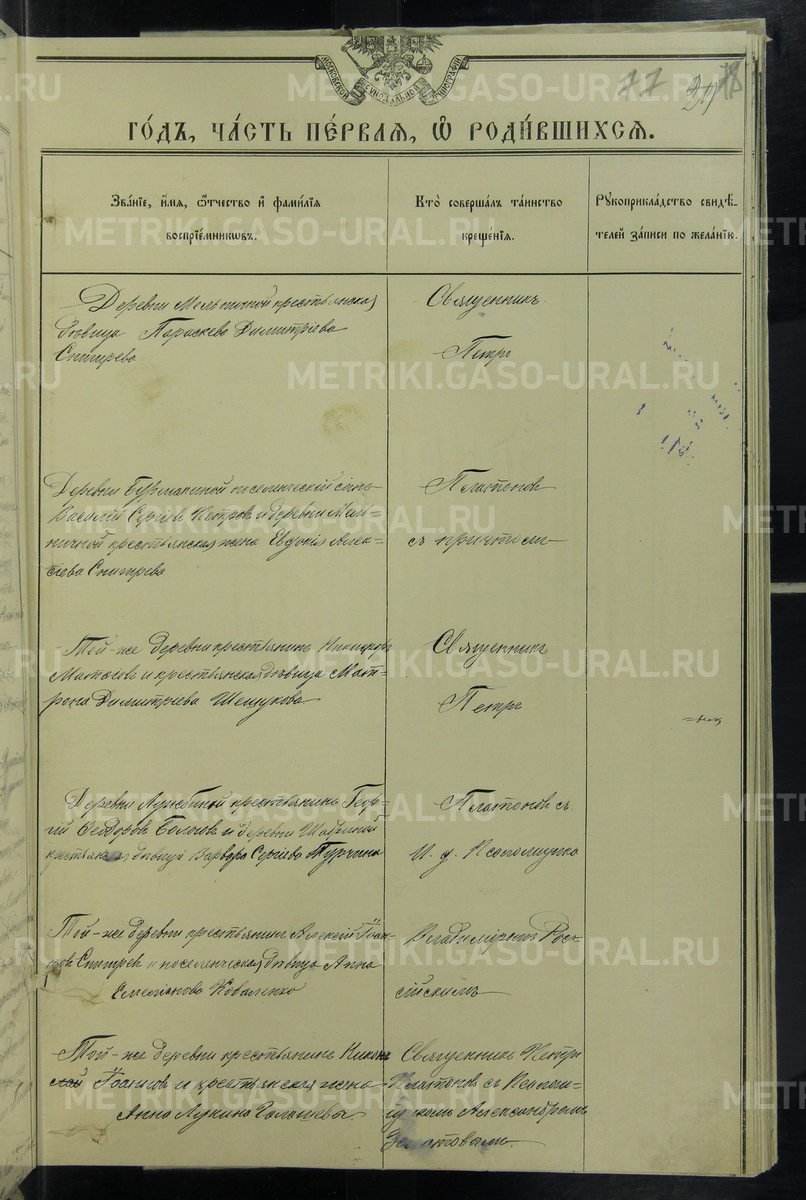 МОСКОВСКОЙ СИНОДАЛЬНОЙ ТИПОГРАФІИ
77
ГО́ДЪ, ЧА́СТЬ ПЕ́РВАЯ, Ѡ РОДИ́ВШИХСЯ.
Зва́нїе, и҆́мя, ѻ҆́тчество и҆ фами́лїя
воспрїе́мникѡвъ.
Кто̀ соверша́лъ та́инство
креще́нїя.
Рꙋкоприкла́дство свидѣ́-
телей за́писи по жела́нїю.
Деревни Мельничной крестьянская
дѣвица Параскева Димитріева
Снигирева
Священникъ
Петръ
Деревни Бурмакиной поселенческій сынъ
Василій Сергіев Петров и деревни Мель-
ничной крестьянская жена Евдокія Алек-
сіева Снигирева
Платонов
съ причтомъ
Той-же деревни крестьянинъ Никифоръ
и крестьянская дѣвица Мат-
рона Димитріева Шешукова
Священникъ
Петръ
Деревни крестьянинъ Геор-
гій Ѳеодоров и деревни
дѣвица Варвара Сергіева Турчина
Платонов съ
И. д. Псаломщика
Той-же деревни крестьянин Алексѣй Іоан-
нов Снигирев и поселенческая дѣвица Анна
Емельянова Коваленко
Владиміромъ Рос-
сійскимъ
Той-же деревни крестьянинъ
и крестьянская жена
Анна Лукина Галашева
Священник Петръ
Платонов съ Псаломщ-
иком Александромъ
Золотовымъ.
METRIKI.GASO-URAL.RU